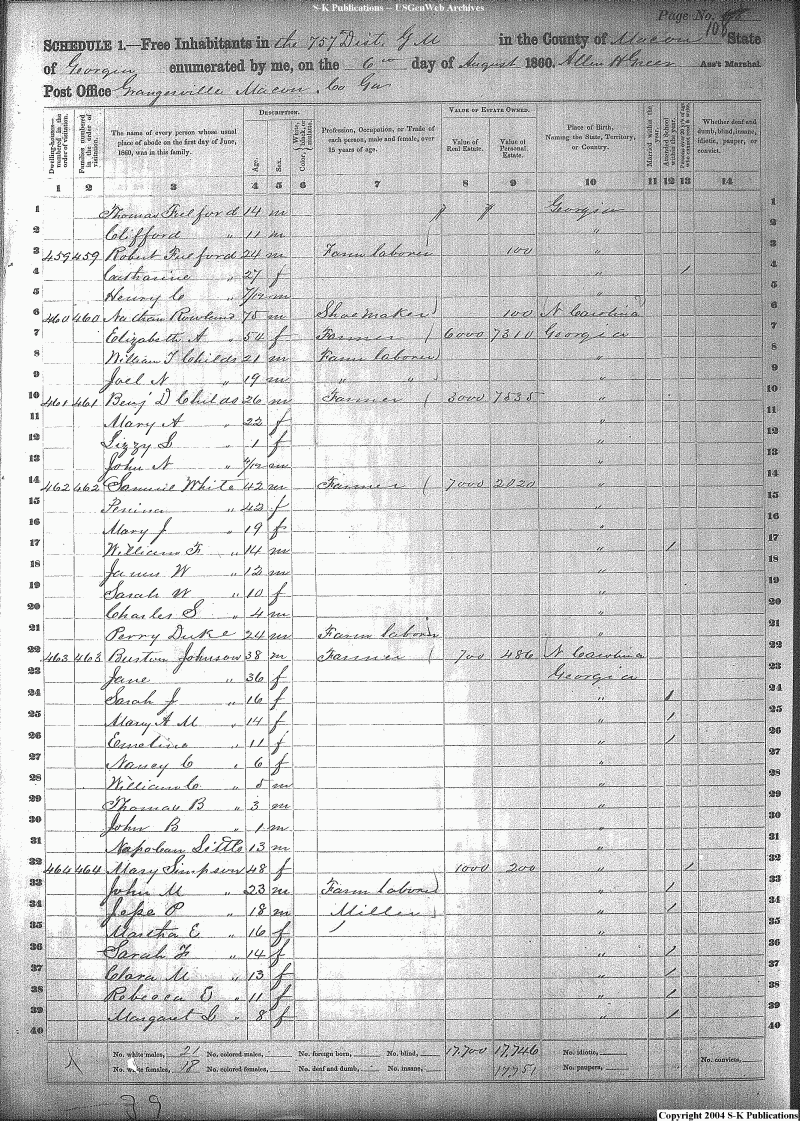 S-K Publications -- USGenWeb Archives
Page No. 108
SCHEDULE 1.—Free Inhabitants in the 757 Dist. G M in the County of Macon State
of Georgia enumerated by me, on the 6th day of August 1860. Allen H Greer Ass't Marshal.
Post Office Grangerville Macon Co Ga
Dwelling-houses—numbered in the order of visitation.
Families numbered in the order of visitation.
The name of every person whose usual place of abode on the first day of June, 1860, was in this family.
DESCRIPTION.
Age.
Sex.
Color, { White, black, or mulatto.
Profession, Occupation, or Trade of each person, male and female, over 15 years of age.
VALUE OF ESTATE OWNED.
Value of Real Estate.
Value of Personal Estate.
Place of Birth, Naming the State, Territory, or Country.
Married within the year.
Attended School within the year.
Persons over 20 y'rs of age who cannot read & write.
Whether deaf and dumb, blind, insane, idiotic, pauper, or convict.
1 2 3 4 5 6 7 8 9 10 11 12 13 14
1 Thomas Fulford 14 m Georgia 1
2 Clifford " 11 m " 2
3 459 459 Robert Fulford 24 m Farm laborer 100 " 3
4 Catharine " 27 f " / 4
5 Henry C " 7/12 m " 5
6 460 460 Nathan Rowland 75 m Shoemaker 100 N Carolina 6
7 Elizabeth A " 54 f Farmer 6000 7310 Georgia 7
8 William T Childs 21 m Farm laborer " 8
9 Joel N " 19 m " " " 9
10 461 461 Benj D Childs 26 m Farmer 3000 7535 " 10
11 Mary A " 22 f " 11
12 Lizzy L " 1 f " 12
13 John N " 4/12 m " 13
14 462 462 Samuel White 42 m Farmer 7000 2020 " 14
15 Penina " 42 f " 15
16 Mary J " 19 f " 16
17 William F " 14 m " / 17
18 James W " 12 m " 18
19 Sarah W " 10 f " 19
20 Charles S " 4 m " 20
21 Perry Duke 24 m Farm laborer " 21
22 463 463 Burton Johnson 38 m Farmer 700 486 N Carolina 22
23 Jane " 36 f Georgia 23
24 Sarah J " 16 f " / 24
25 Mary A M " 14 f " / 25
26 Emeline " 11 f " / 26
27 Nancy C " 6 f " 27
28 William C " 5 m " 28
29 Thomas B " 3 m " 29
30 John B " 1 m " 30
31 Napolean Little 13 m " 31
32 464 464 Mary Simpson 48 f 1000 200 " / 32
33 John M " 23 m Farm laborer " / 33
34 Jesse P " 18 m Miller " / 34
35 Martha E " 16 f " 35
36 Sarah F " 14 f " / 36
37 Clara M " 13 f " / 37
38 Rebecca E " 11 f " / 38
39 Margaret L " 8 f " / 39
40 40
No. white males, 21 No. colored males, No. foreign born, No. blind, 17,700 17,746 No. idiotic,
No. white females, 18 No. colored females, No. deaf and dumb, No. insane, 17,751 No. paupers, No. convicts,
39
Copyright 2004 S-K Publications